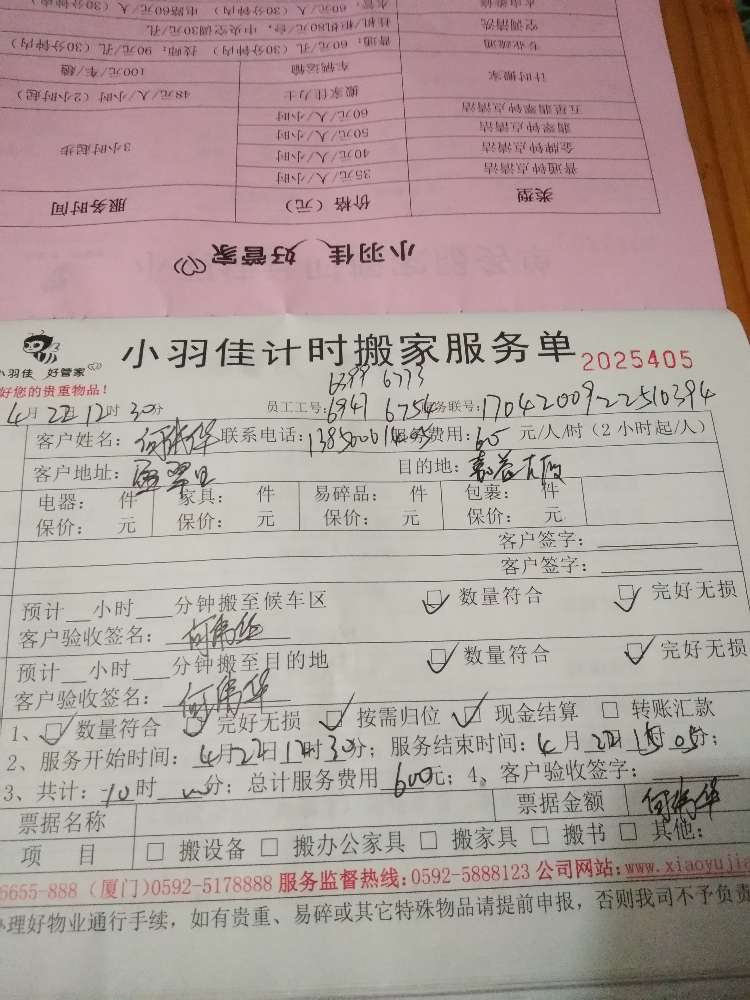 水管: 60元/人 (30分钟内) 电路60元/人 (30分钟内)
空调清洗 挂机/柜机80元/台, 中央空调30元/孔
专业疏通 普通: 60元/孔 (30分钟内) 技师: 90元/孔 (30分钟内)
计时搬家 车辆运输 100元/车/趟
搬家佳力士 48元/人/小时 (2小时起)
五星翡翠钟点清洁 60元/人/小时
翡翠钟点清洁 50元/人/小时
金牌钟点清洁 40元/人/小时 3小时起步
普通钟点清洁 35元/人/小时
类型 价格 (元) 服务时间
小羽佳 好管家
小羽佳 好管家
小羽佳计时搬家服务单 2025405
好您的贵重物品!
6399 6773
4月22日12时30分 员工工号: 6947 6754 服务联号: 1704200922510394
客户姓名: 何伟华 联系电话: 服务费用: 60 元/人/时 (2小时起/人)
客户地址: 目的地:
电器: 件 家具: 件 易碎品: 件 包裹: 件
保价: 元 保价: 元 保价: 元 保价: 元
客户签字:
客户签字:
预计__小时___分钟搬至候车区 数量符合 完好无损
客户验收签名: 何伟华
预计__小时___分钟搬至目的地 数量符合 完好无损
客户验收签名: 何伟华
1、 数量符合 完好无损 按需归位 现金结算 转账汇款
2、服务开始时间: 4月22日12时30分; 服务结束时间: 4月22日15时05分;
3、共计: 10时 分; 总计服务费用 600元; 4、客户验收签字:
票据名称 票据金额 何伟华
项 目 □ 搬设备 □ 搬办公家具 □ 搬家具 □ 搬书 □ 其他:
6655-888 (厦门)0592-5178888 服务监督热线: 0592-5888123 公司网站: www.xiaoyujia
办理好物业通行手续, 如有贵重、易碎或其它特殊物品请提前申报, 否则我司不予负责